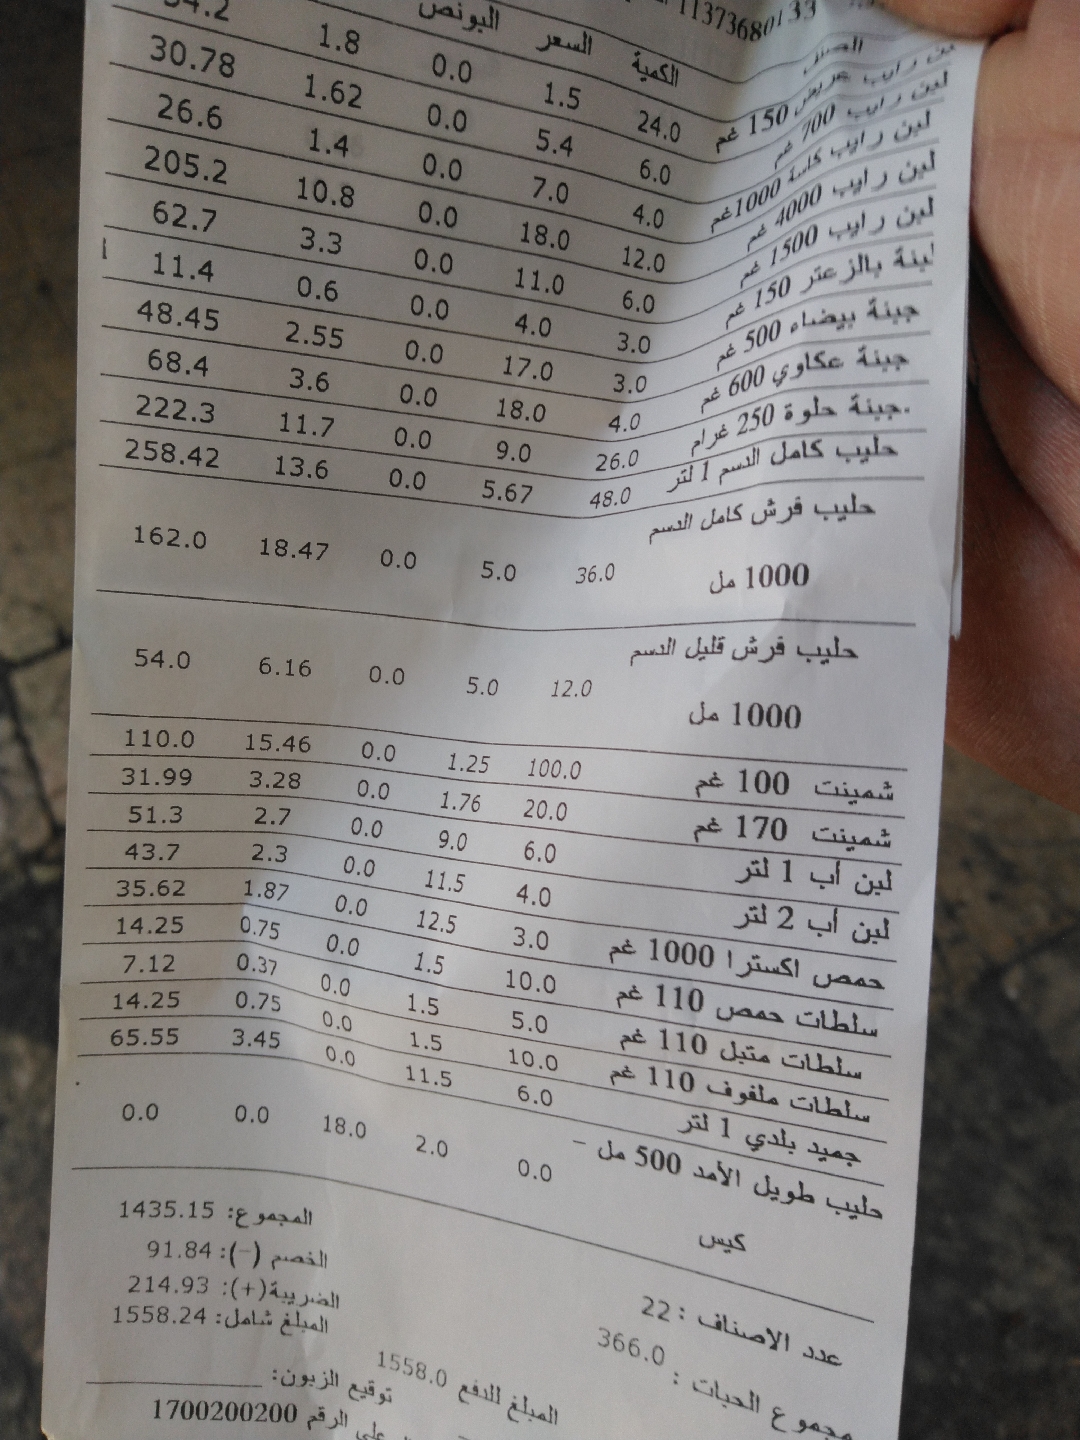 11373680133
الصنف الكمية السعر البونص
لبن رايب عريض 150 غم 24.0 1.5 0.0 1.8
لبن رايب 700 غم 6.0 5.4 0.0 1.62 30.78
لبن رايب كاسة 1000غم 4.0 7.0 0.0 1.4 26.6
لبن رايب 4000 غم 12.0 18.0 0.0 10.8 205.2
لبن رايب 1500 غم 6.0 11.0 0.0 3.3 62.7
لبنة بالزعتر 150 غم 3.0 4.0 0.0 0.6 11.4
جبنة بيضاء 500 غم 3.0 17.0 0.0 2.55 48.45
جبنة عكاوي 600 غم 4.0 18.0 0.0 3.6 68.4
جبنة حلوة 250 غرام. 26.0 9.0 0.0 11.7 222.3
حليب كامل الدسم 1 لتر 48.0 5.67 0.0 13.6 258.42
حليب فرش كامل الدسم
1000 مل 36.0 5.0 0.0 18.47 162.0
حليب فرش قليل الدسم
1000 مل 12.0 5.0 0.0 6.16 54.0
شمينت 100 غم 100.0 1.25 0.0 15.46 110.0
شمينت 170 غم 20.0 1.76 0.0 3.28 31.99
لبن أب 1 لتر 6.0 9.0 0.0 2.7 51.3
لبن أب 2 لتر 4.0 11.5 0.0 2.3 43.7
حمص اكسترا 1000 غم 3.0 12.5 0.0 1.87 35.62
سلطات حمص 110 غم 10.0 1.5 0.0 0.75 14.25
سلطات متبل 110 غم 5.0 1.5 0.0 0.37 7.12
سلطات ملفوف 110 غم 10.0 1.5 0.0 0.75 14.25
جميد بلدي 1 لتر 6.0 11.5 0.0 3.45 65.55
حليب طويل الأمد 500 مل -
كيس 0.0 2.0 18.0 0.0 0.0
المجموع: 1435.15
الخصم (-): 91.84
الضريبة(+): 214.93
المبلغ شامل: 1558.24
عدد الاصناف : 22
مجموع الحبات : 366.0
المبلغ للدفع 1558.0
توقيع الزبون:
على الرقم 1700200200